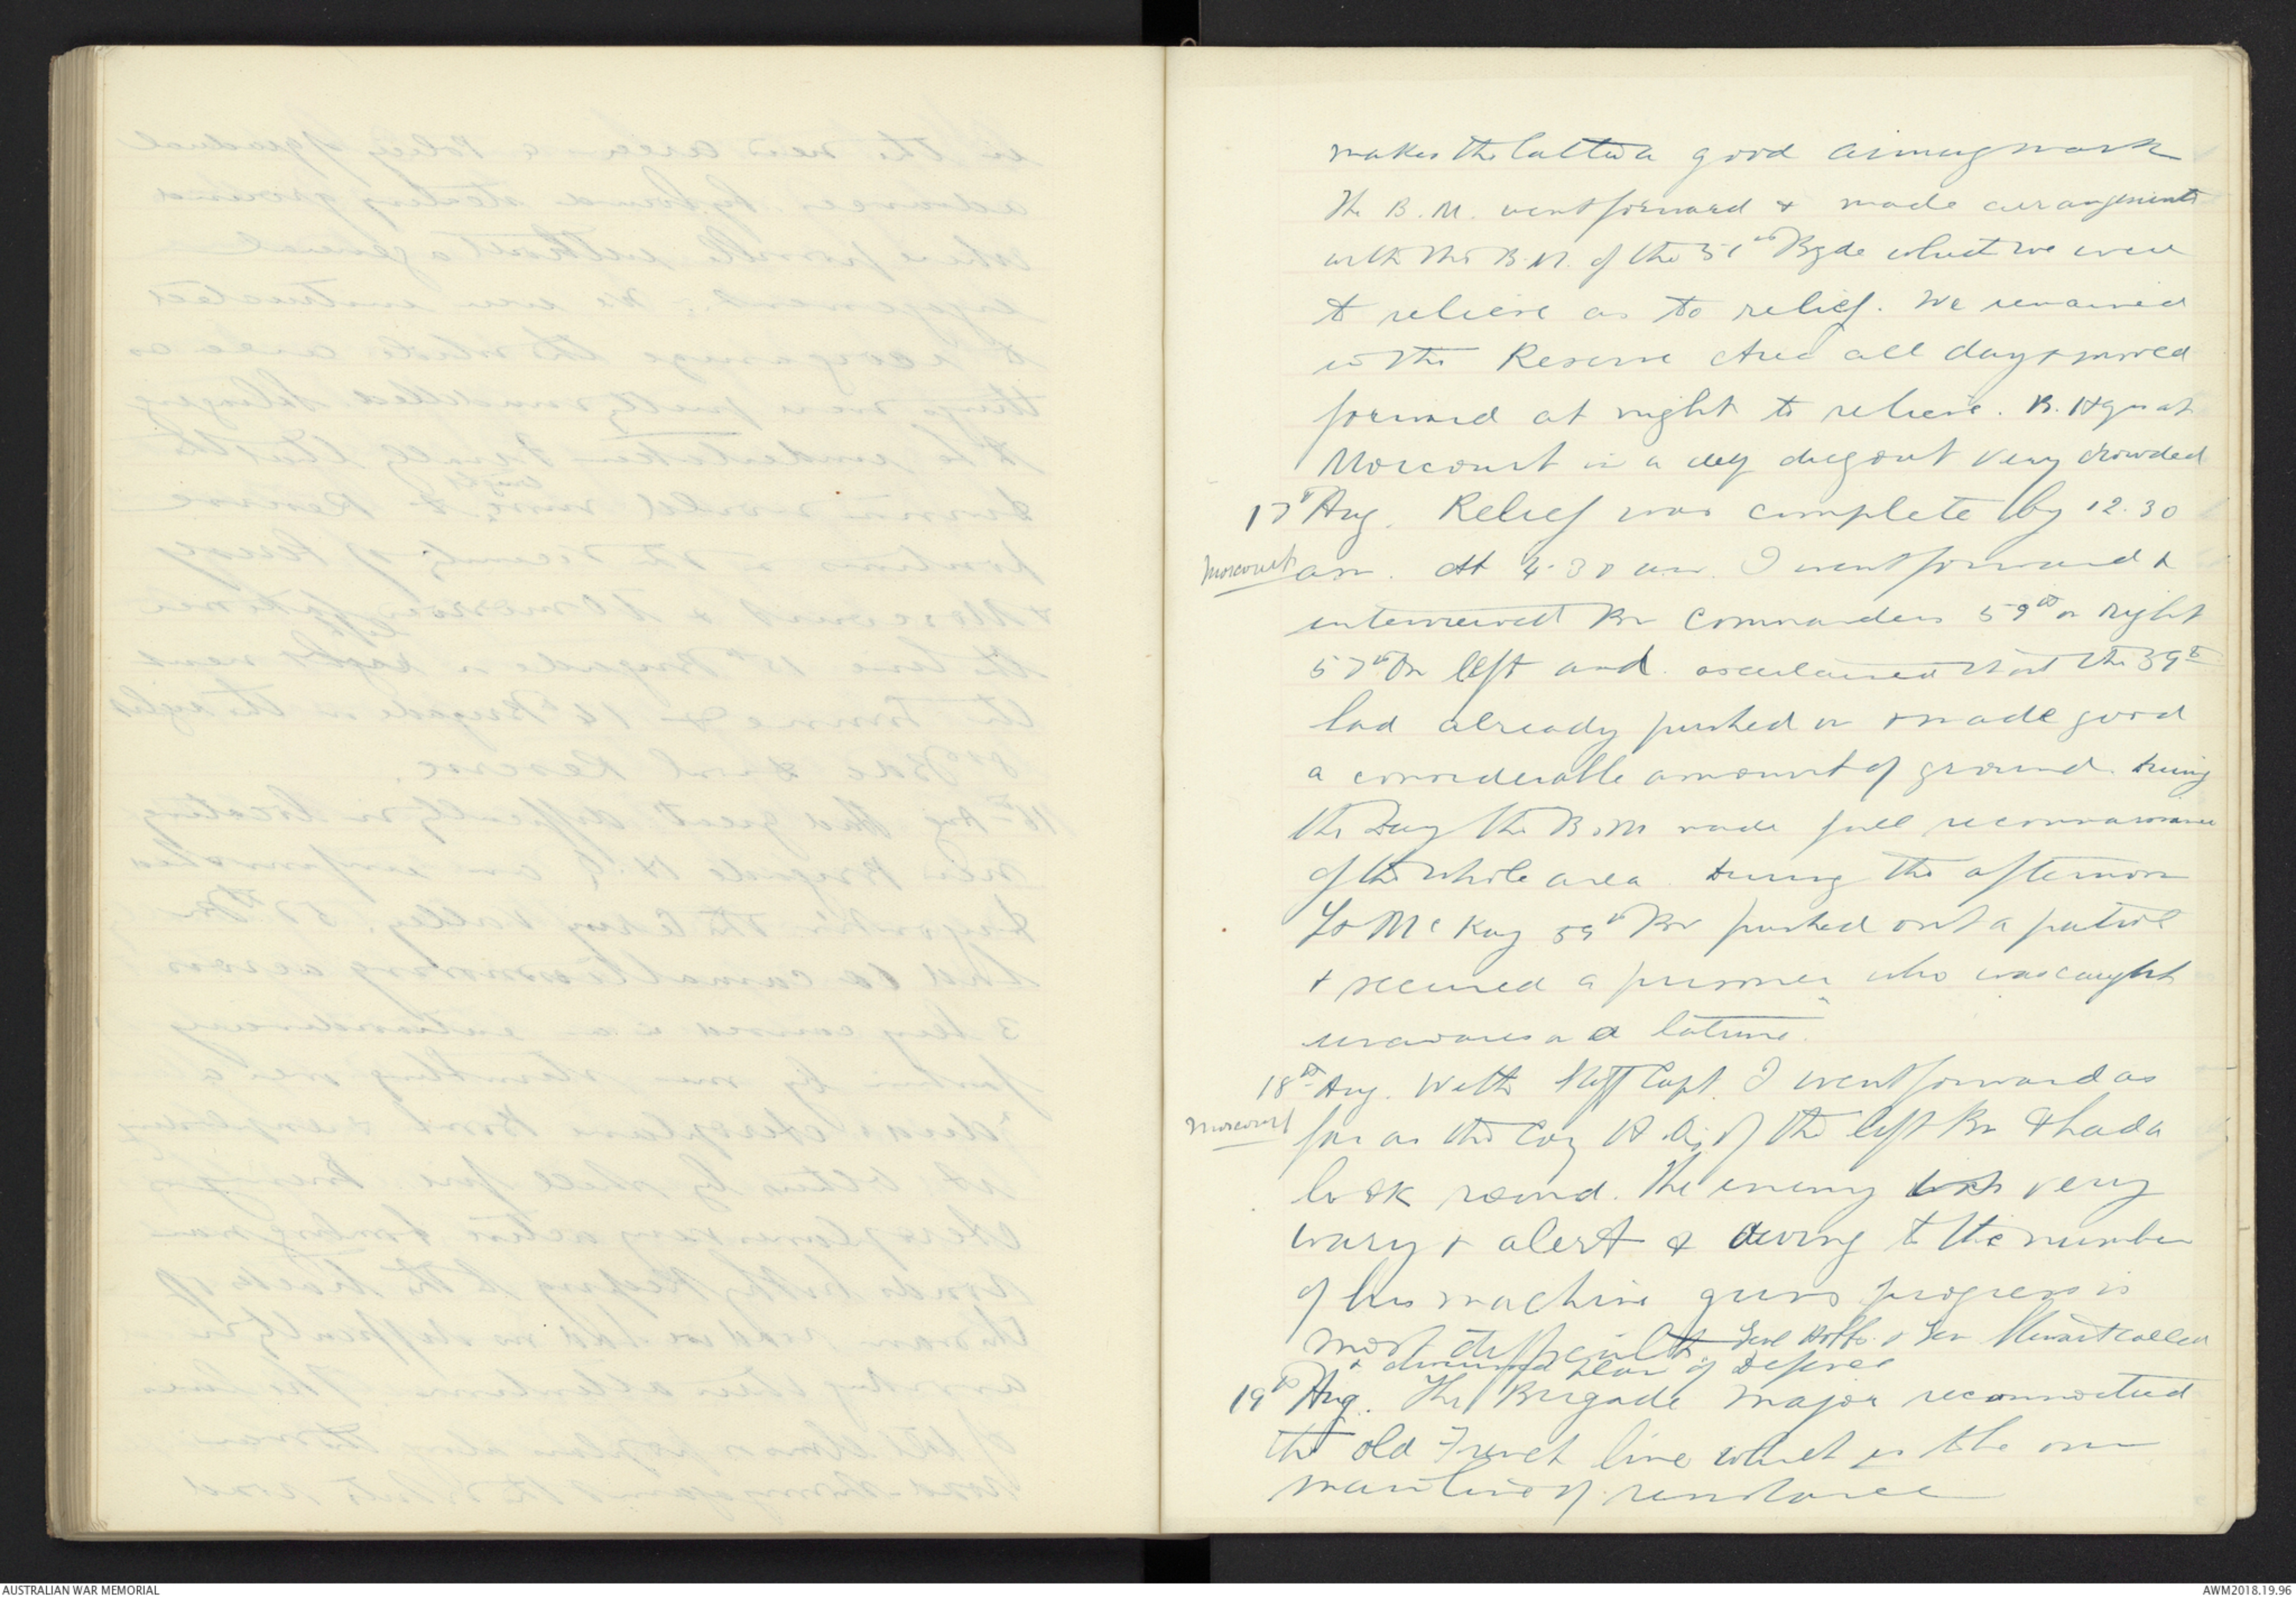 makes the latter a good aiming mark
The B.M. went forward & made arrangements
with the B.M. of the 51st Bgde what we were
to relieve as to relief. We remained
in the Reserve Area all day & moved
forward at night to relieve. B. Hqrs at
Morcourt in a deep dugout very crowded
17th Aug. Relief was complete by 12.30
Morcourt
am. At 4.30 am. I went forward &
interviewed Bn Commanders 59th on right
57th on left and ascertained that the 59th
had already pushed on & made good
a considerable amount of ground. During
the Day the B.M. made full reconnaissance
of the whole area. During the afternoon
Lt McKay 59th Bn pushed out a patrol
& secured a prisoner who was caught
unawares in a latrine.
18th Aug. With Staff Capt. I went forward as
Morcourt
far as the Coy H.Q. of the left Bn & had a
look round. The enemy was very
wary & alert & owing to the number
of his machine guns progress is
most difficult. Genl Hobbs & Gen Stewart called
& discussed plan of Defence
19th Aug. The Brigade Major reconnoitred
the old French line which is the our
main line of resistance
AUSTRALIAN WAR MEMORIAL
AWM2018.19.96